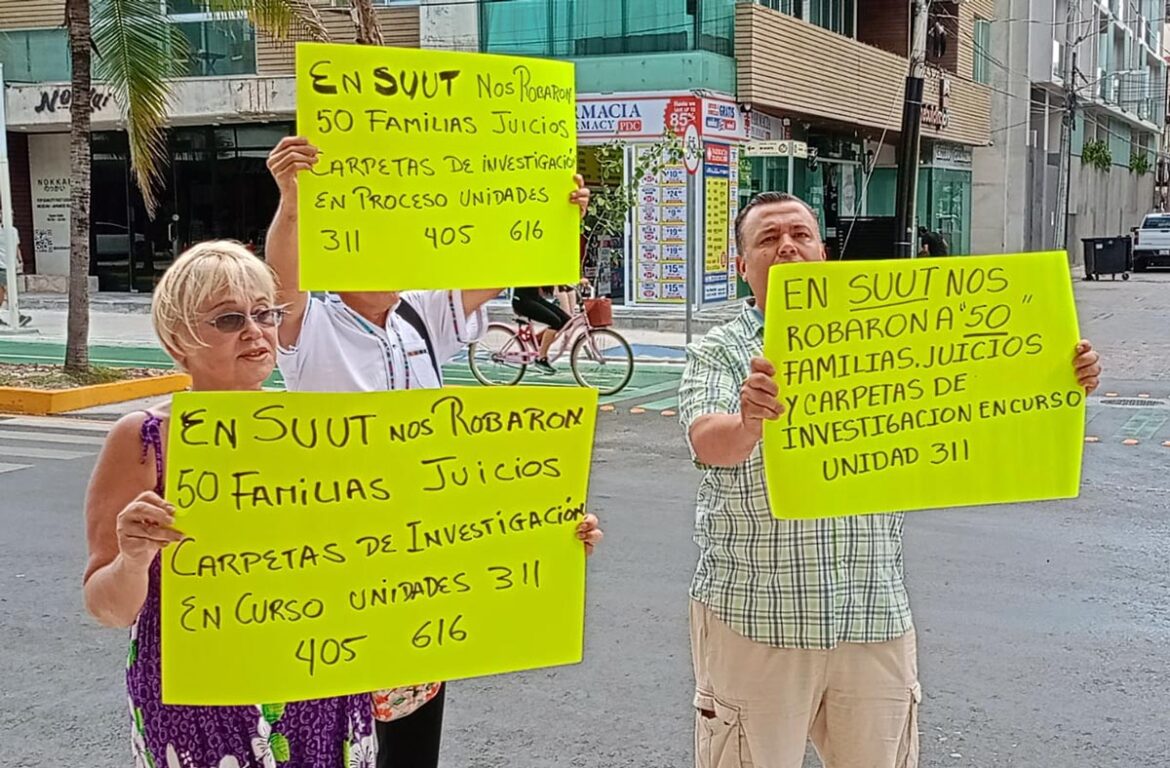 EN SUUT NOS ROBARON
50 FAMILIAS JUICIOS
CARPETAS DE INVESTIGACIÓN
EN PROCESO UNIDADES
311 405 616
EN SUUT NOS
ROBARON A "50"
FAMILIAS. JUICIOS
Y CARPETAS DE
INVESTIGACION EN CURSO
UNIDAD 311
EN SUUT NOS ROBARON
50 FAMILIAS JUICIOS
CARPETAS DE INVESTIGACIÓN
EN CURSO UNIDADES 311
405 616
FARMACIA
PDC
85%
GRATIS
NOKKAI